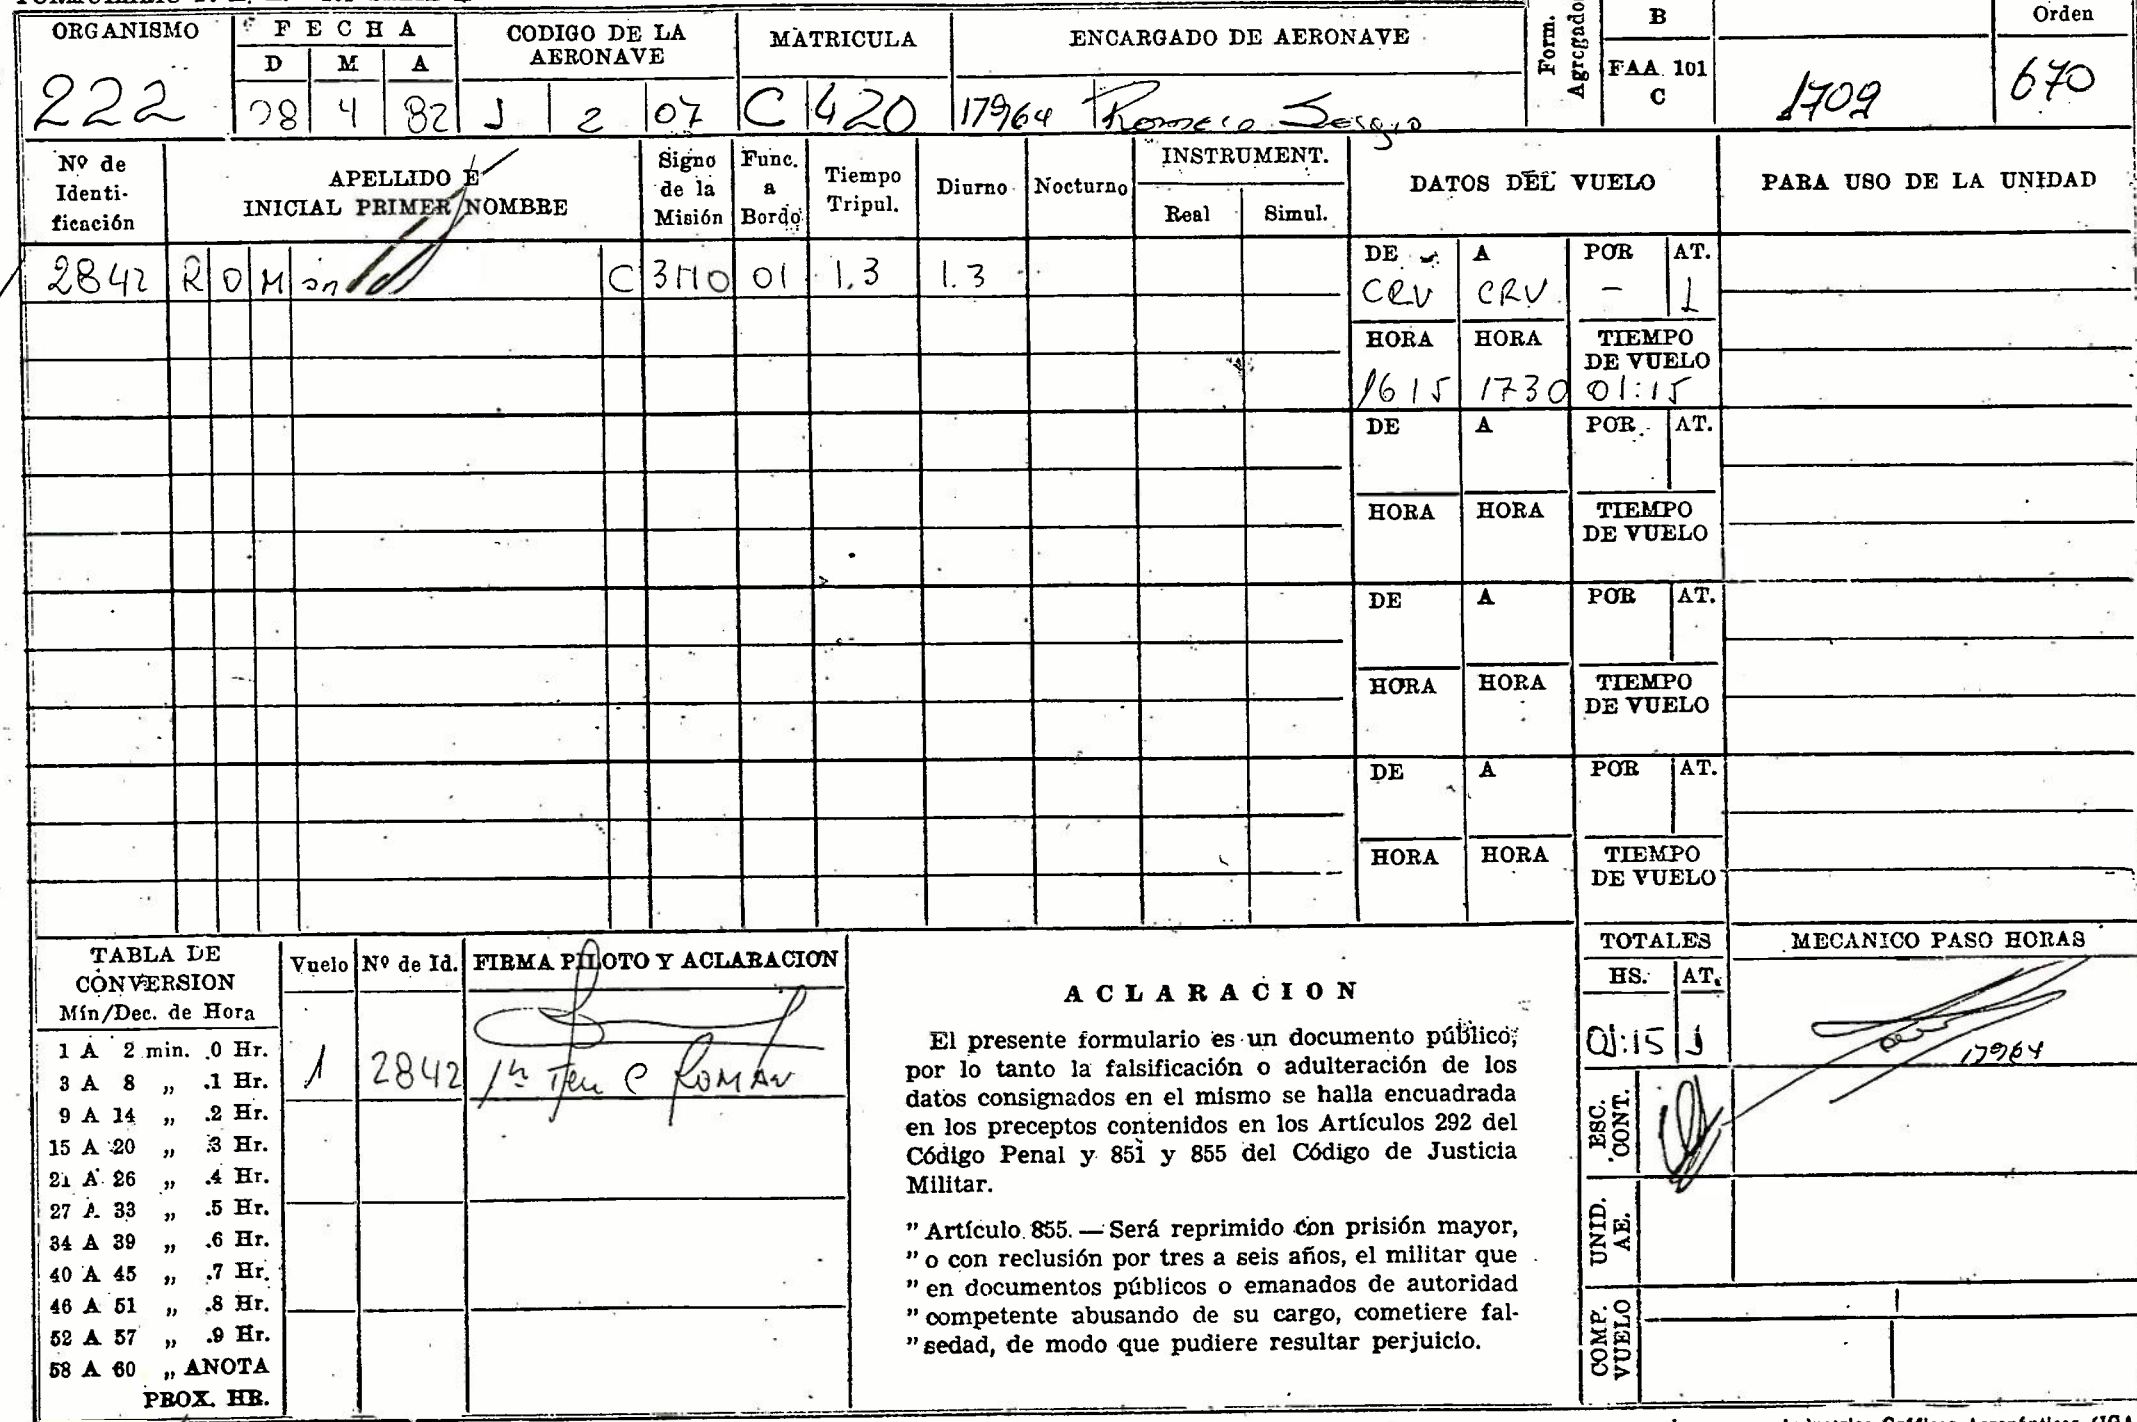 ORGANISMO FECHA CODIGO DE LA AERONAVE MATRICULA ENCARGADO DE AERONAVE Form. Agregado B Orden
D M A FAA 101 C
222 28 4 82 J 2 07 C 420 17964 Romero Sergio 1709 670
Nº de Identificación APELLIDO E INICIAL PRIMER NOMBRE Signo de la Misión Func. a Bordo Tiempo Tripul. Diurno Nocturno INSTRUMENT. DATOS DEL VUELO PARA USO DE LA UNIDAD
Real Simul.
DE A POR AT.
2842 R O M án C 3M0 01 1.3 1.3 CRV CRV - 1
HORA HORA TIEMPO DE VUELO
1615 1730 01:15
DE A POR AT.
HORA HORA TIEMPO DE VUELO
DE A POR AT.
HORA HORA TIEMPO DE VUELO
DE A POR AT.
HORA HORA TIEMPO DE VUELO
TABLA DE CONVERSION
Mín/Dec. de Hora
1 A 2 min. .0 Hr.
3 A 8 „ .1 Hr.
9 A 14 „ .2 Hr.
15 A 20 „ .3 Hr.
21 A 26 „ .4 Hr.
27 A 33 „ .5 Hr.
34 A 39 „ .6 Hr.
40 A 45 „ .7 Hr.
46 A 51 „ .8 Hr.
52 A 57 „ .9 Hr.
58 A 60 „ ANOTA
PROX. HR.
Vuelo Nº de Id. FIRMA PILOTO Y ACLARACION
1 2842 1er Ten C ROMAN
ACLARACION
El presente formulario es un documento público;
por lo tanto la falsificación o adulteración de los
datos consignados en el mismo se halla encuadrada
en los preceptos contenidos en los Artículos 292 del
Código Penal y 851 y 855 del Código de Justicia
Militar.
” Artículo 855. — Será reprimido con prisión mayor,
” o con reclusión por tres a seis años, el militar que
” en documentos públicos o emanados de autoridad
” competente abusando de su cargo, cometiere fal-
” sedad, de modo que pudiere resultar perjuicio.
TOTALES MECANICO PASO HORAS
HS. AT.
01:15 1
17964
ESC. CONT.
UNID. AE.
COMP. VUELO